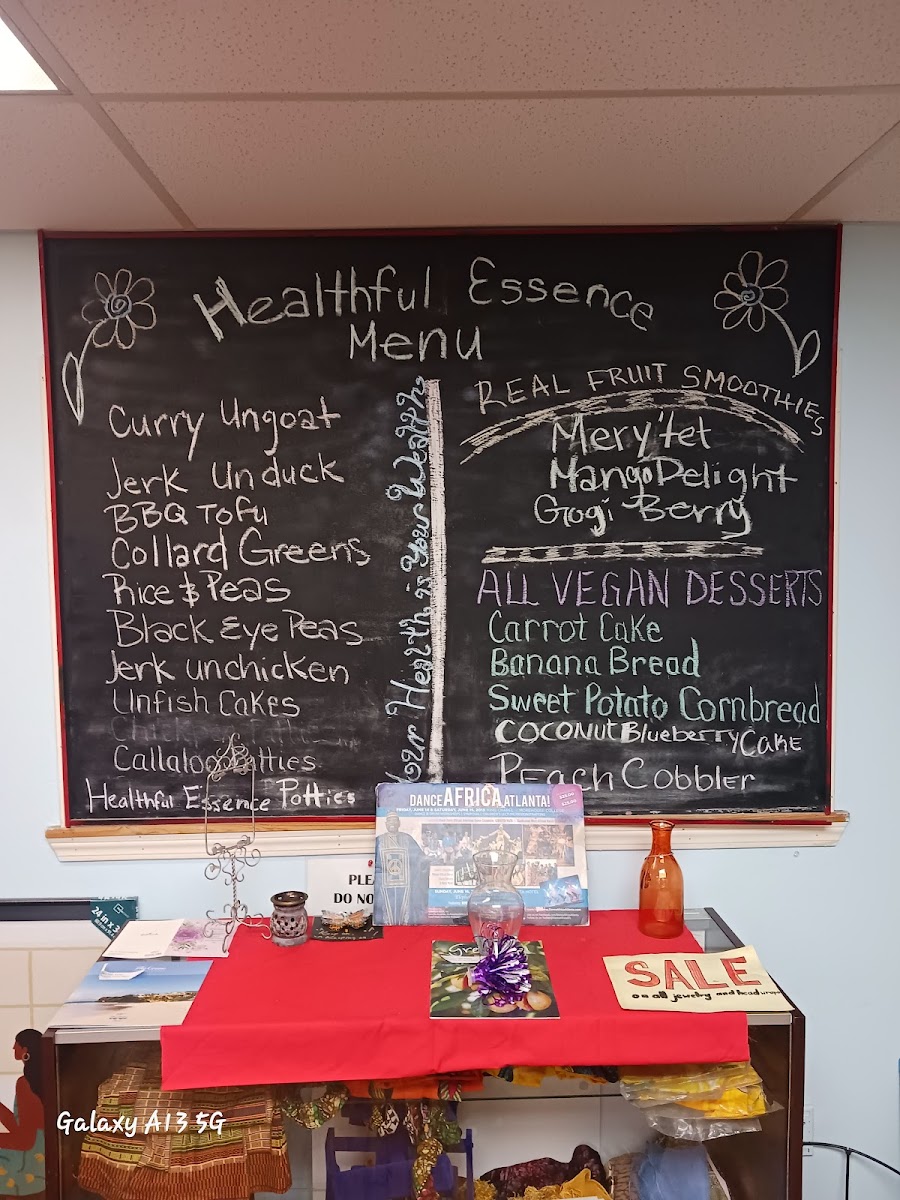 Healthful Essence
Menu
Curry Ungoat
Jerk Unduck
BBQ Tofu
Collard Greens
Rice & Peas
Black Eye Peas
Jerk unchicken
Unfish Cakes
Callaloo Patties
Healthful Essence Potties
Your Health is Your Wealth
REAL FRUIT SMOOTHIES
Mery'tet
Mango Delight
Gogi Berry
ALL VEGAN DESSERTS
Carrot Cake
Banana Bread
Sweet Potato Cornbread
COCONUT Blueberry Cake
PEach Cobbler
DANCE AFRICA ATLANTA!
PLE
DO NO
24 in x 3
SALE
on all jewelry and head wraps
Galaxy A13 5G